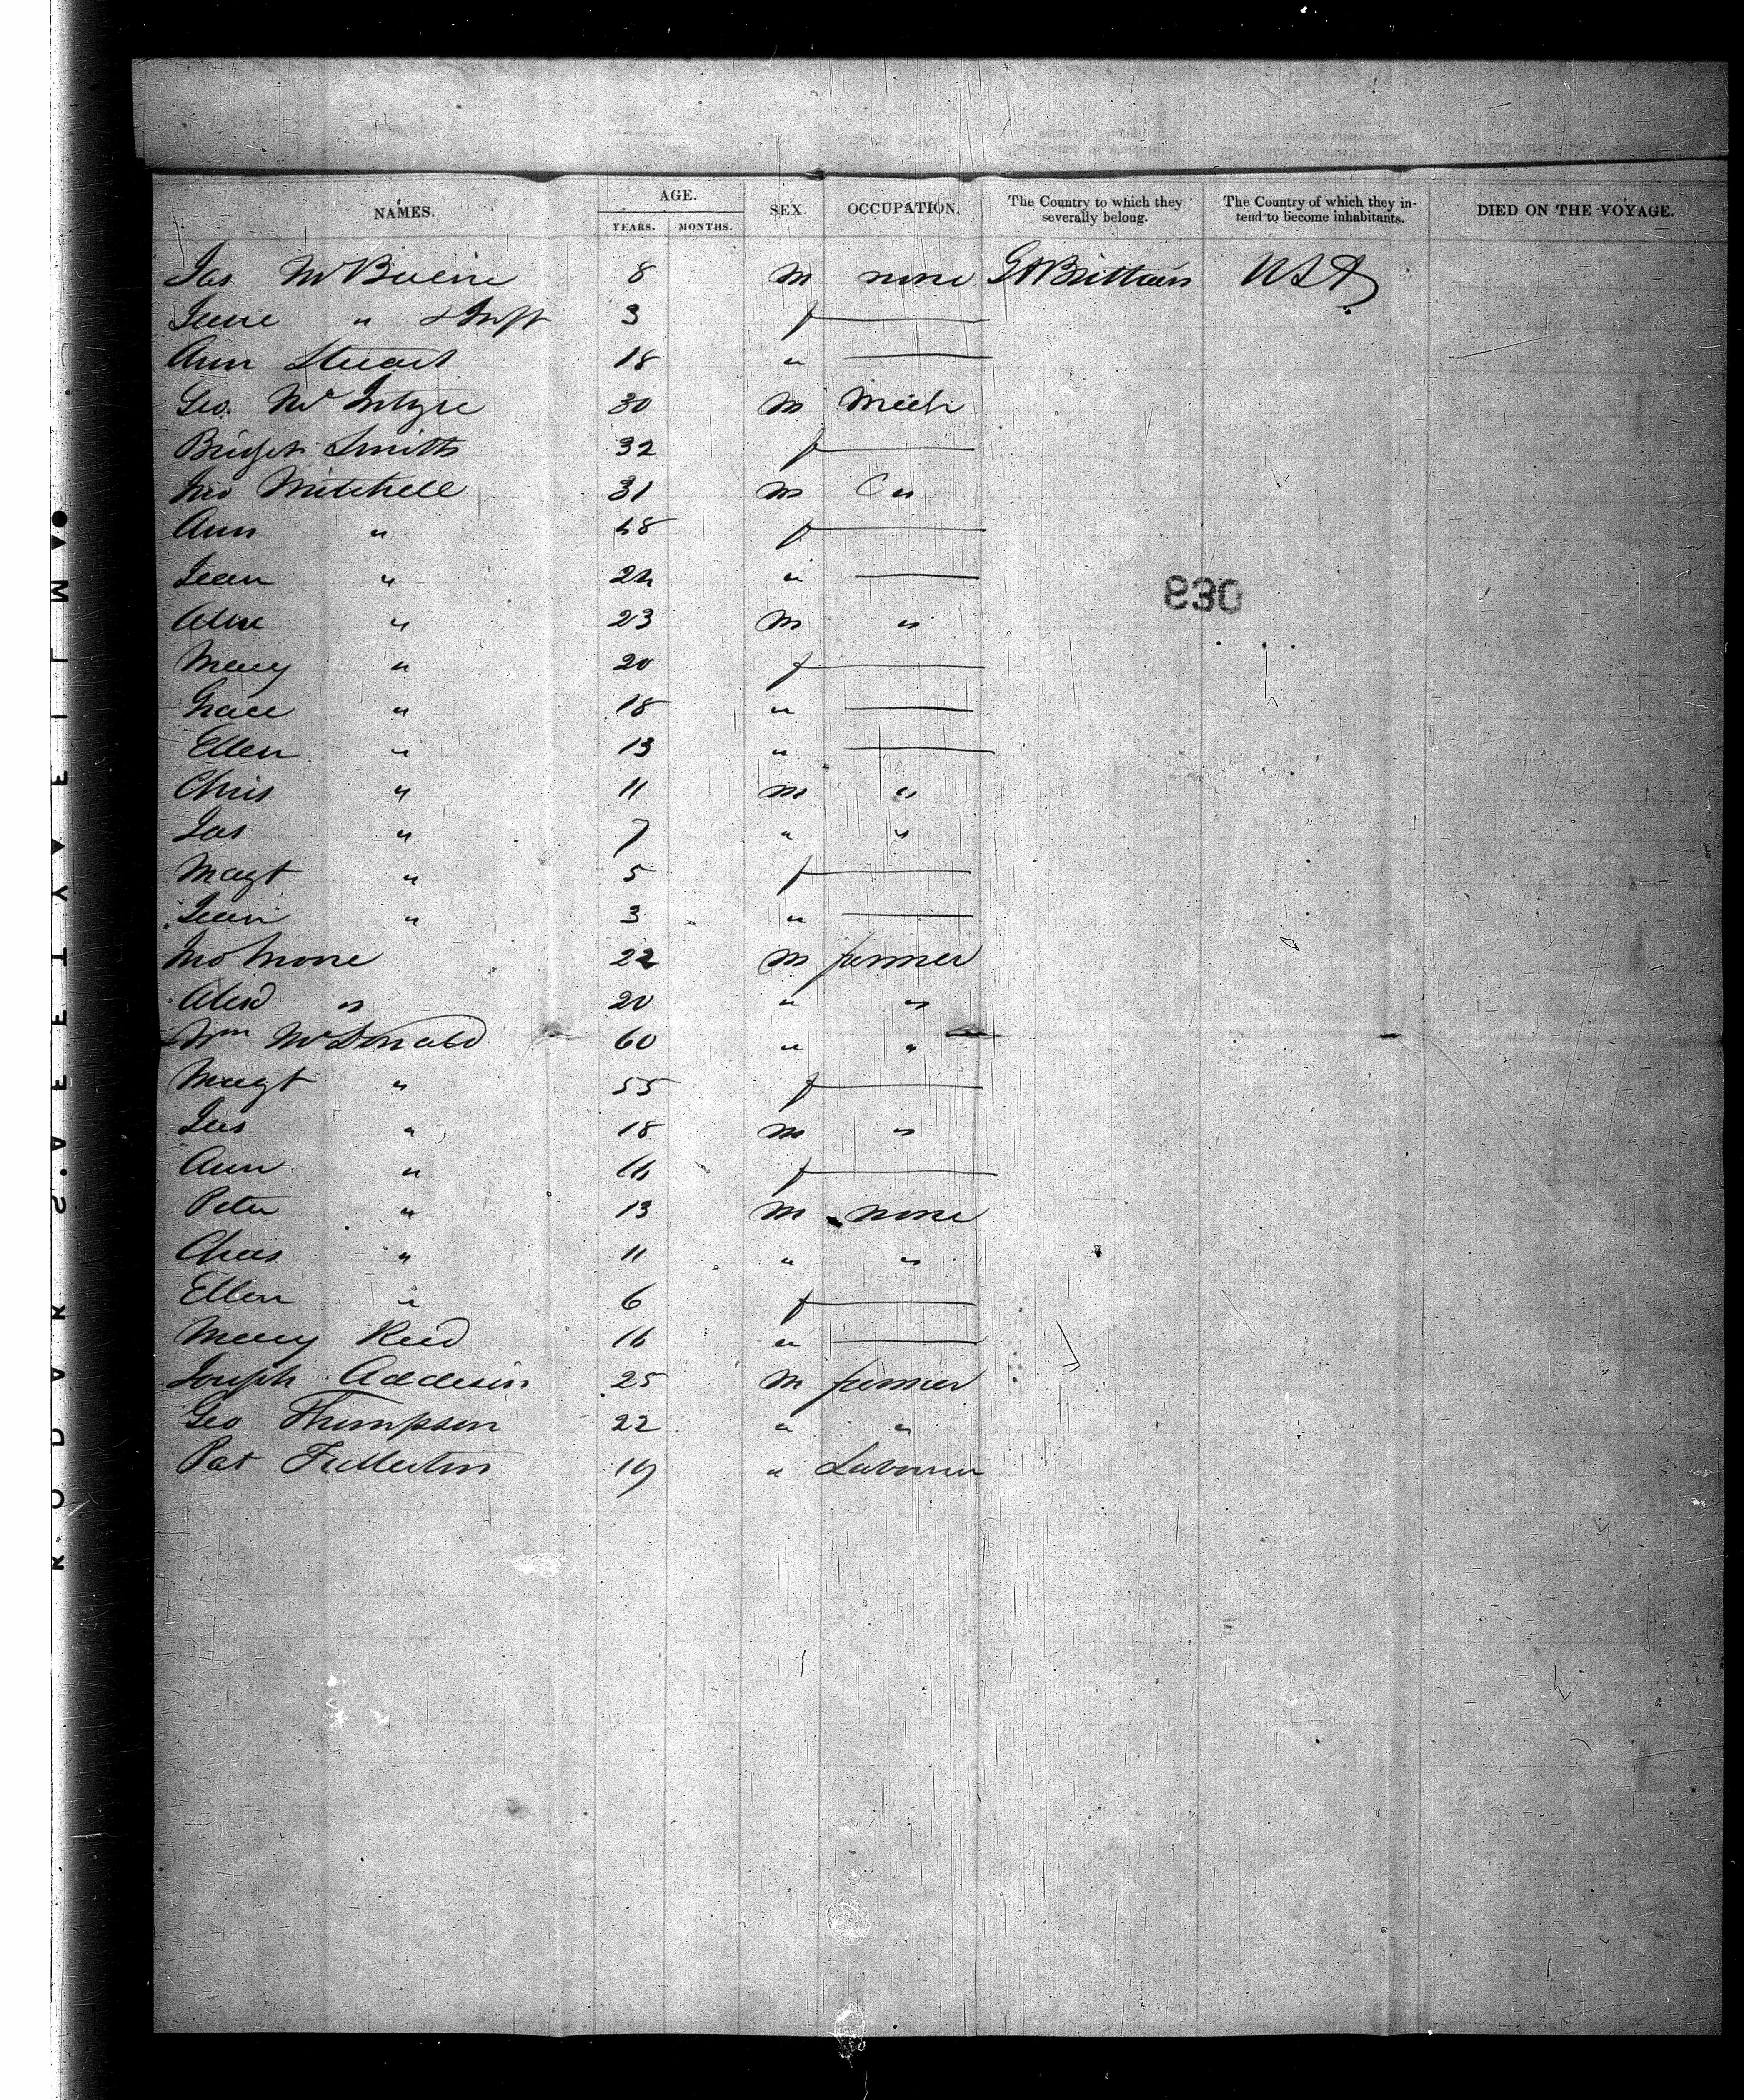 NAMES. AGE. SEX. OCCUPATION. The Country to which they severally belong. The Country of which they intend to become inhabitants. DIED ON THE VOYAGE.
YEARS. MONTHS.
Jas 8 m none Gt Brittain USA
Jane " & Inft 3 f
Ann Stuart 18 "
Geo. McIntyre 30 m Mech
Bridget Smith 32 f
Jno Mitchell 31 m "
Ann " 48 f
Jean " 24 "
Alex " 23 m "
Mary " 20 f
Grace " 18 "
Ellen " 13 "
Chris " 11 m "
Jas " 7 " "
Magt " 5 f
Jean " 3 "
Jno 22 m farmer
Alexd " 20 " "
Wm McDonald 60 " "
Magt " 55 f
Jas " 18 m "
Ann " 16 f
Peter " 13 m none
Chas " 11 " "
Ellen " 6 f
Mary Reid 16 "
Joseph Addison 25 m farmer
Geo Thompson 22 " "
Pat Fullerton 19 " Labourer
830